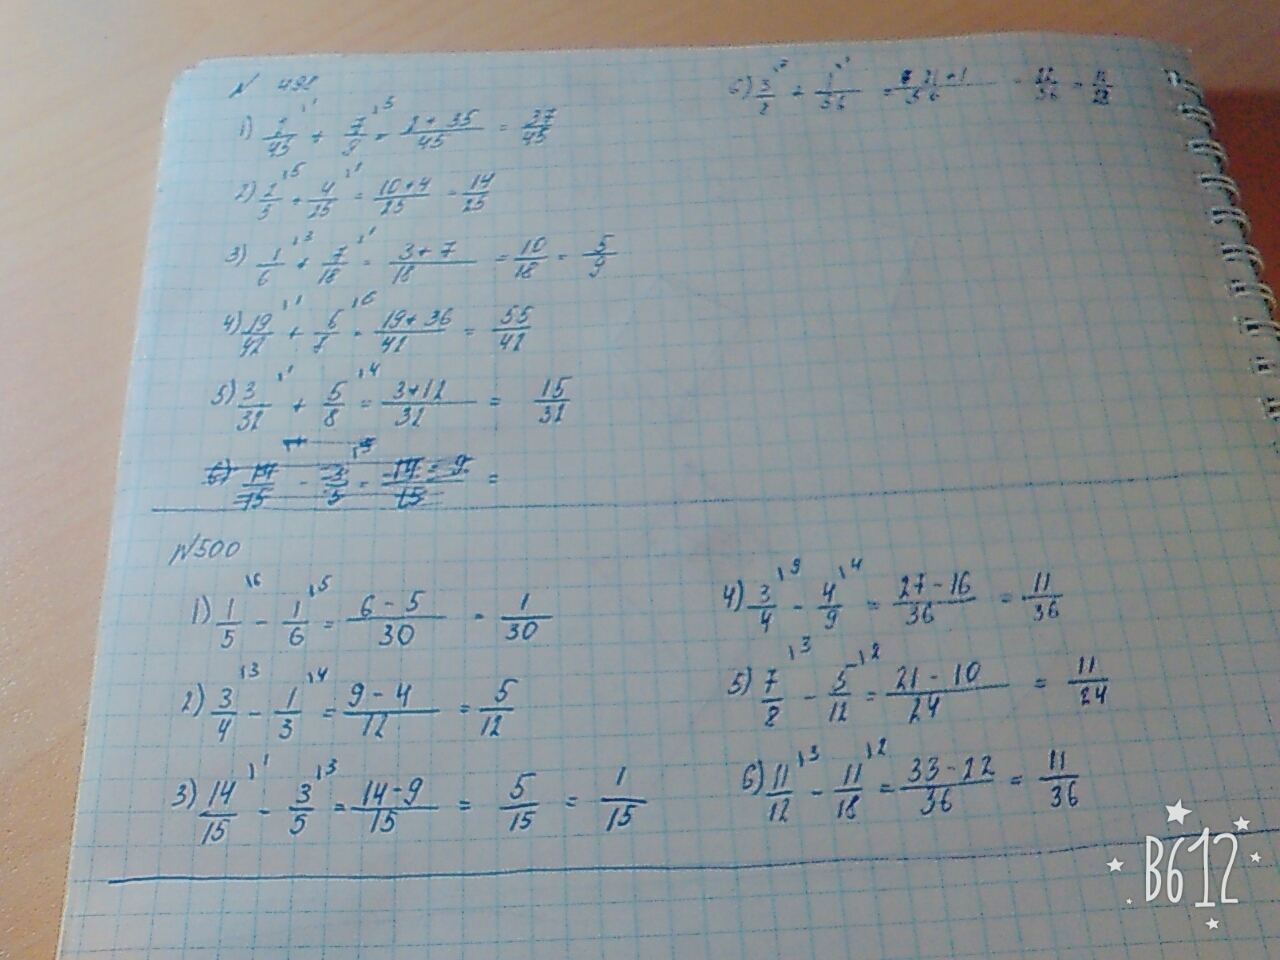 N 498
1) 2/45 \1 + 7/9 \5 = 2+35/45 = 37/45
2) 2/5 \5 + 4/25 \1 = 10+4/25 = 14/25
3) 1/6 \3 + 7/18 \1 = 3+7/18 = 10/18 = 5/9
4) 19/42 \1 + 6/7 \6 = 19+36/42 = 55/42
5) 3/32 \1 + 5/8 \4 = 3+12/32 = 15/32
6) 14/15 \1 - 3/5 \3 = 14-9/15 =
6) + 1/36 = 21+1/36 = 22/36 =
N500
1) 1/5 \6 - 1/6 \5 = 6-5/30 = 1/30
2) 3/4 \3 - 1/3 \4 = 9-4/12 = 5/12
3) 14/15 \1 - 3/5 \3 = 14-9/15 = 5/15 = 1/15
4) 3/4 \9 - 4/9 \4 = 27-16/36 = 11/36
5) 7/8 \3 - 5/12 \2 = 21-10/24 = 11/24
6) 11/12 \3 - 11/18 \2 = 33-22/36 = 11/36
B612